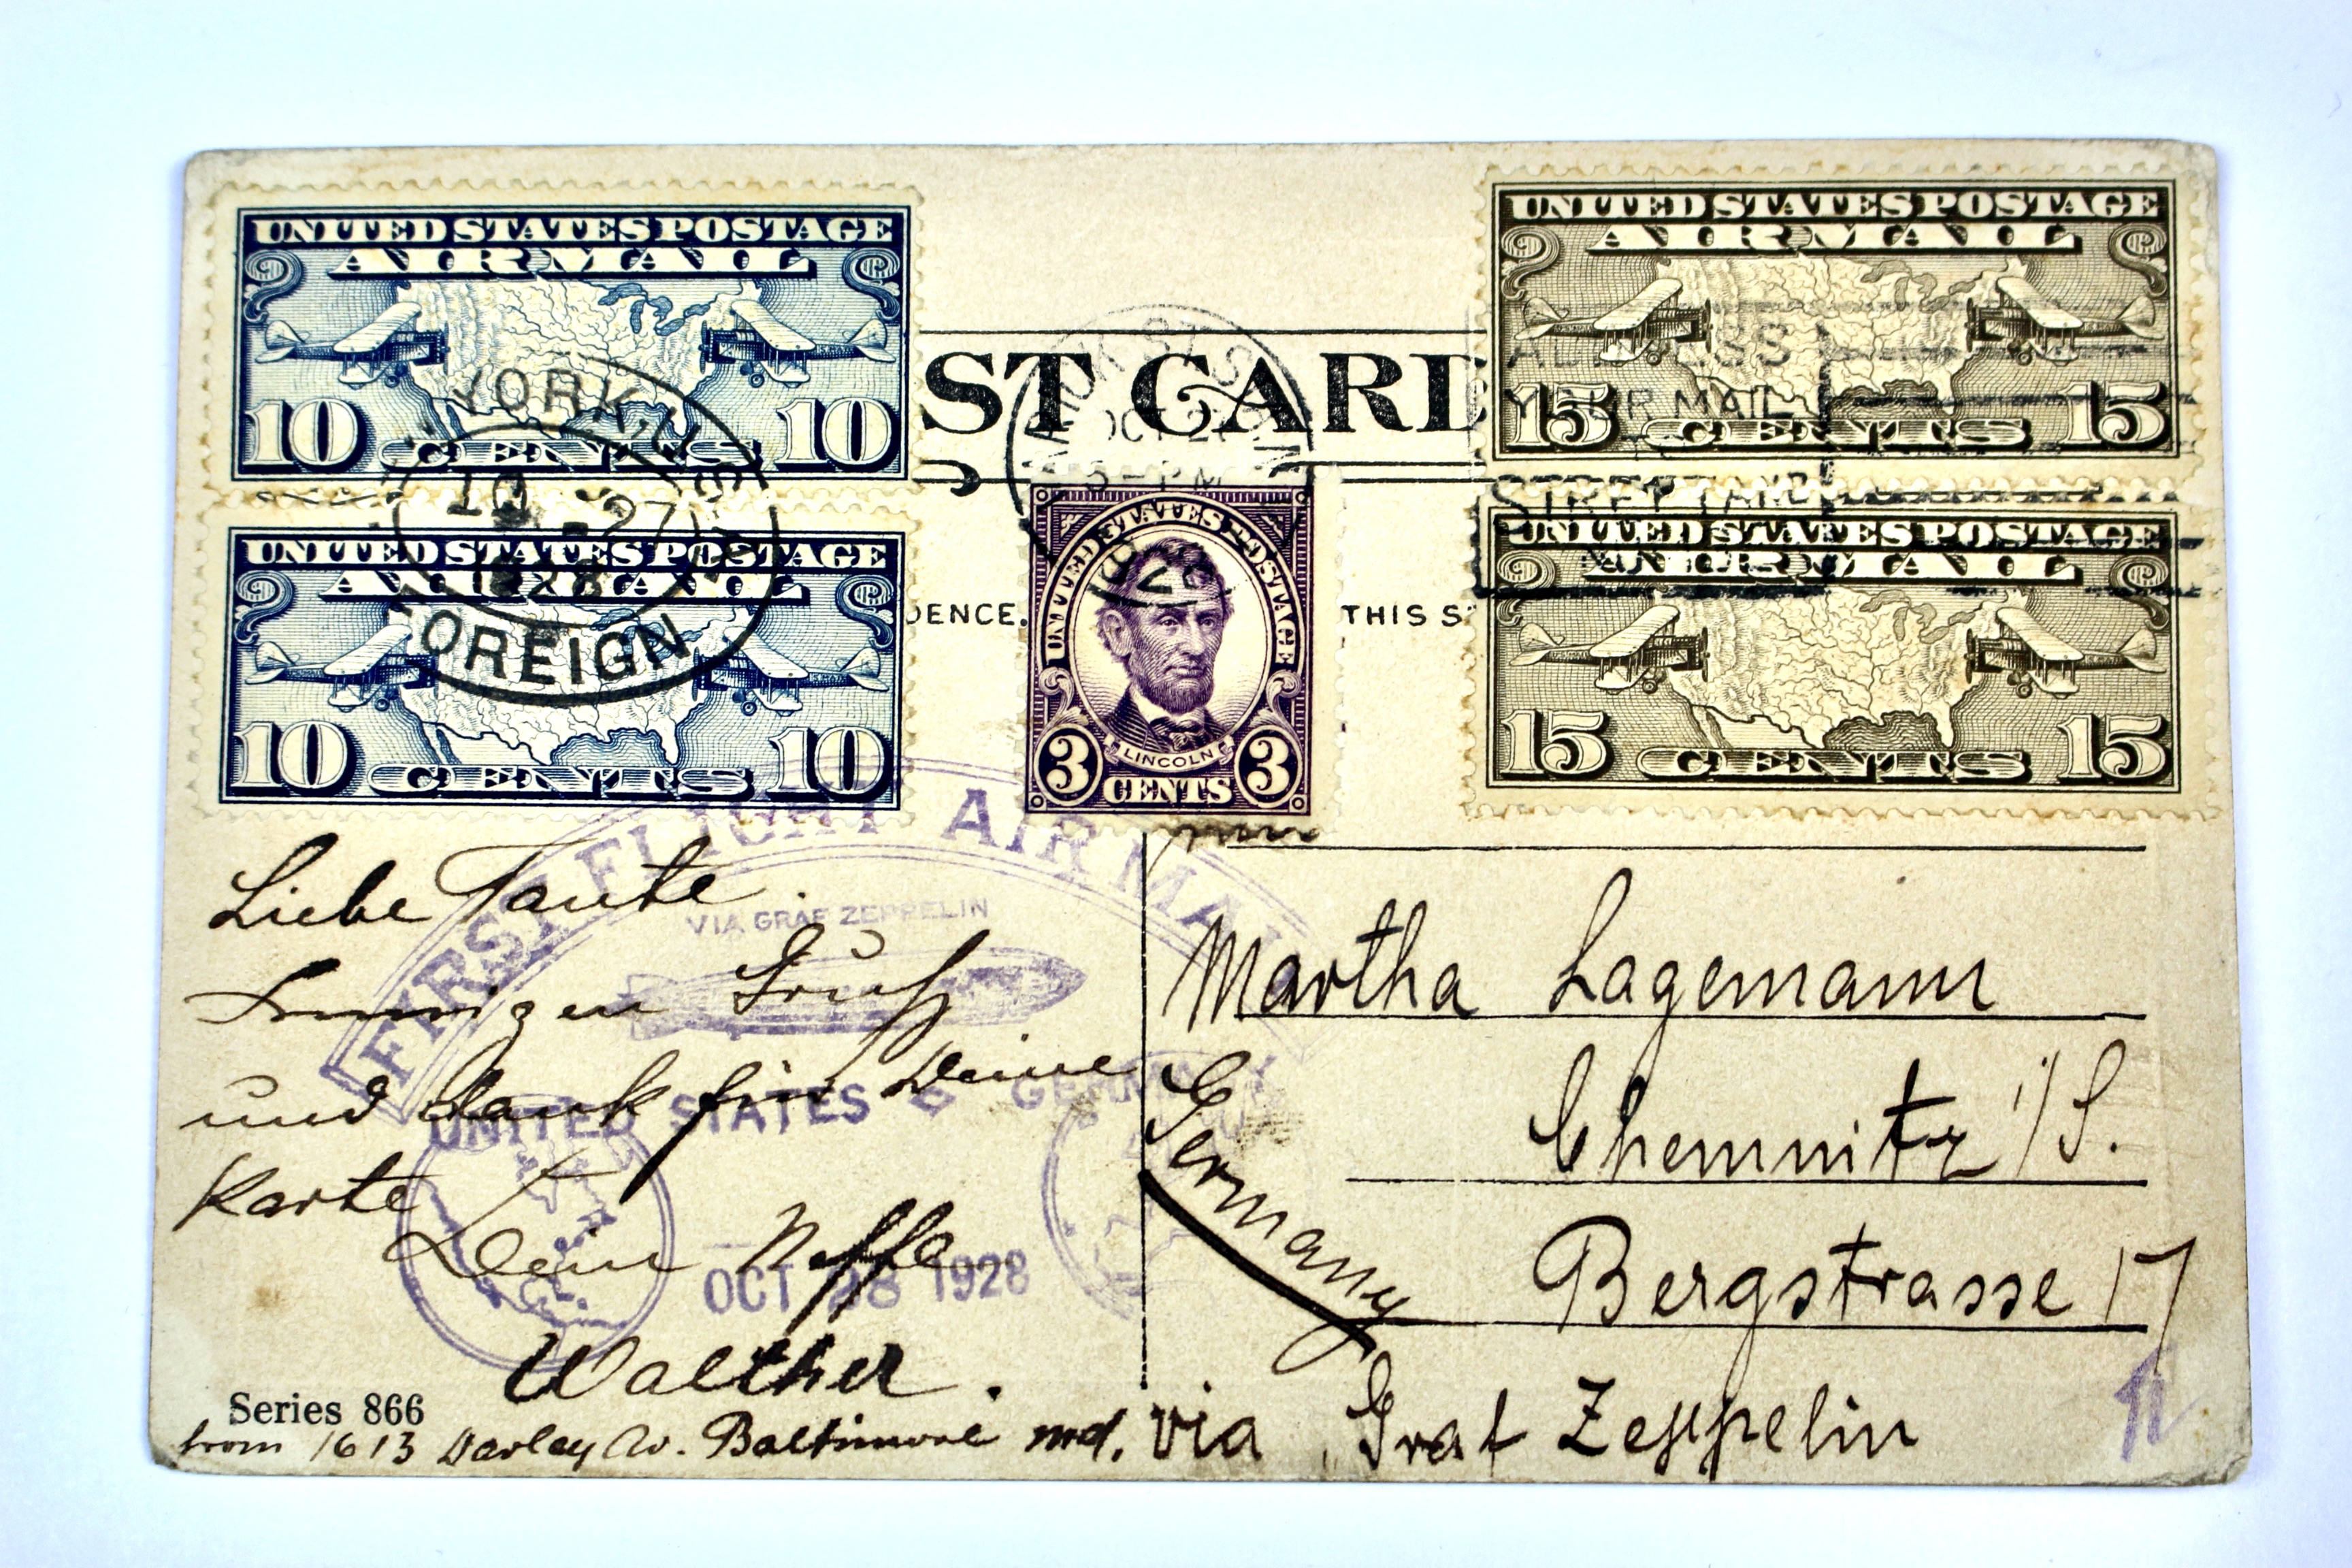 UNITED STATES POSTAGE
AIR MAIL
10 CENTS 10
UNITED STATES POSTAGE
AIR MAIL
10 CENTS 10
YORK, N.
10 -27
1928
FOREIGN
ST CARD
DENCE.
THIS S
OCT 2
3 - PM
1928
UNITED STATES POSTAGE
LINCOLN
3 CENTS 3
UNITED STATES POSTAGE
AIR MAIL
15 CENTS 15
ADDRESS
YOUR MAIL
TO
STREET AND
UNITED STATES POSTAGE
AIR MAIL
15 CENTS 15
FIRST FLIGHT AIR MAIL
VIA GRAF ZEPPELIN
UNITED STATES GERMANY
OCT 28 1928
Liebe Tante.
Gruß
und Dank für Deine
Karte
Dein Neffe
Walther.
Series 866
from 1613 Darley Av. Baltimore Md.
Martha Lagemann
Chemnitz i/S.
Germany
Bergstrasse 17
via Graf Zeppelin